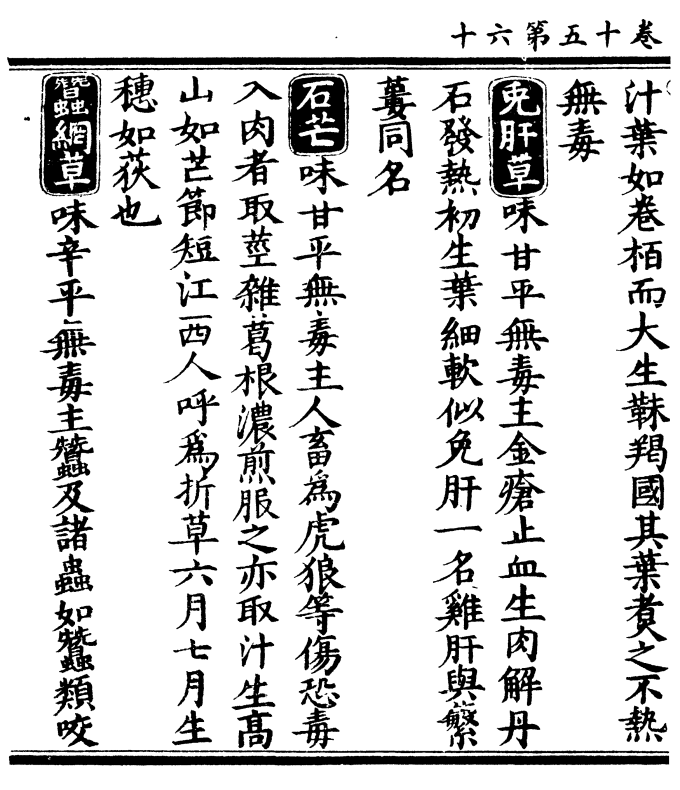 卷十五第六十
汁葉如卷栢而大生靺羯國其葉煑之不熱
無毒
兎肝草味甘平無毒主金瘡止血生肉解丹
石發熱初生葉細軟似兎肝一名雞肝與蘩
蔞同名
石芒味甘平無毒主人畜爲虎狼等傷恐毒
入肉者取莖雜葛根濃煎服之亦取汁生高
山如芒節短江西人呼爲折草六月七月生
穗如荻也
蠶網草味辛平無毒主蠶及諸蟲如蠶類咬